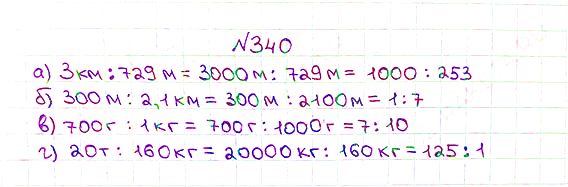 №340
а) 3км : 729м = 3000м : 729м = 1000 : 253
б) 300м : 2,1км = 300м : 2100м = 1:7
в) 700г : 1кг = 700г : 1000г = 7:10
г) 20т : 160кг = 20000кг : 160кг = 125:1